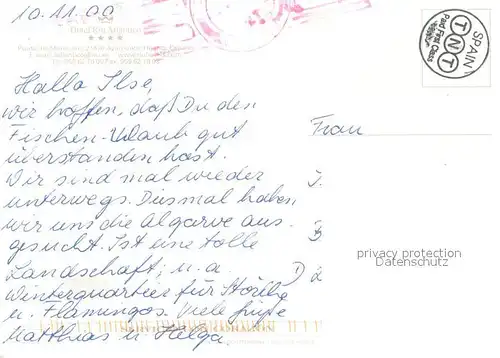 10.11.00
SPAIN
Paid First Class
TNT
Hallo Ilse,
wir hoffen, daß Du den
Fischen-Urlaub gut
überstanden hast.
Wir sind mal wieder
unterwegs. Diesmal haben
wir uns die Algarve aus-
gesucht. Ist eine tolle
Landschaft; u. a.
Winterquartier für Störche
u. Flamingos. Viele Grüße
Matthias u. Helga
Frau
privacy protection
Datenschutz